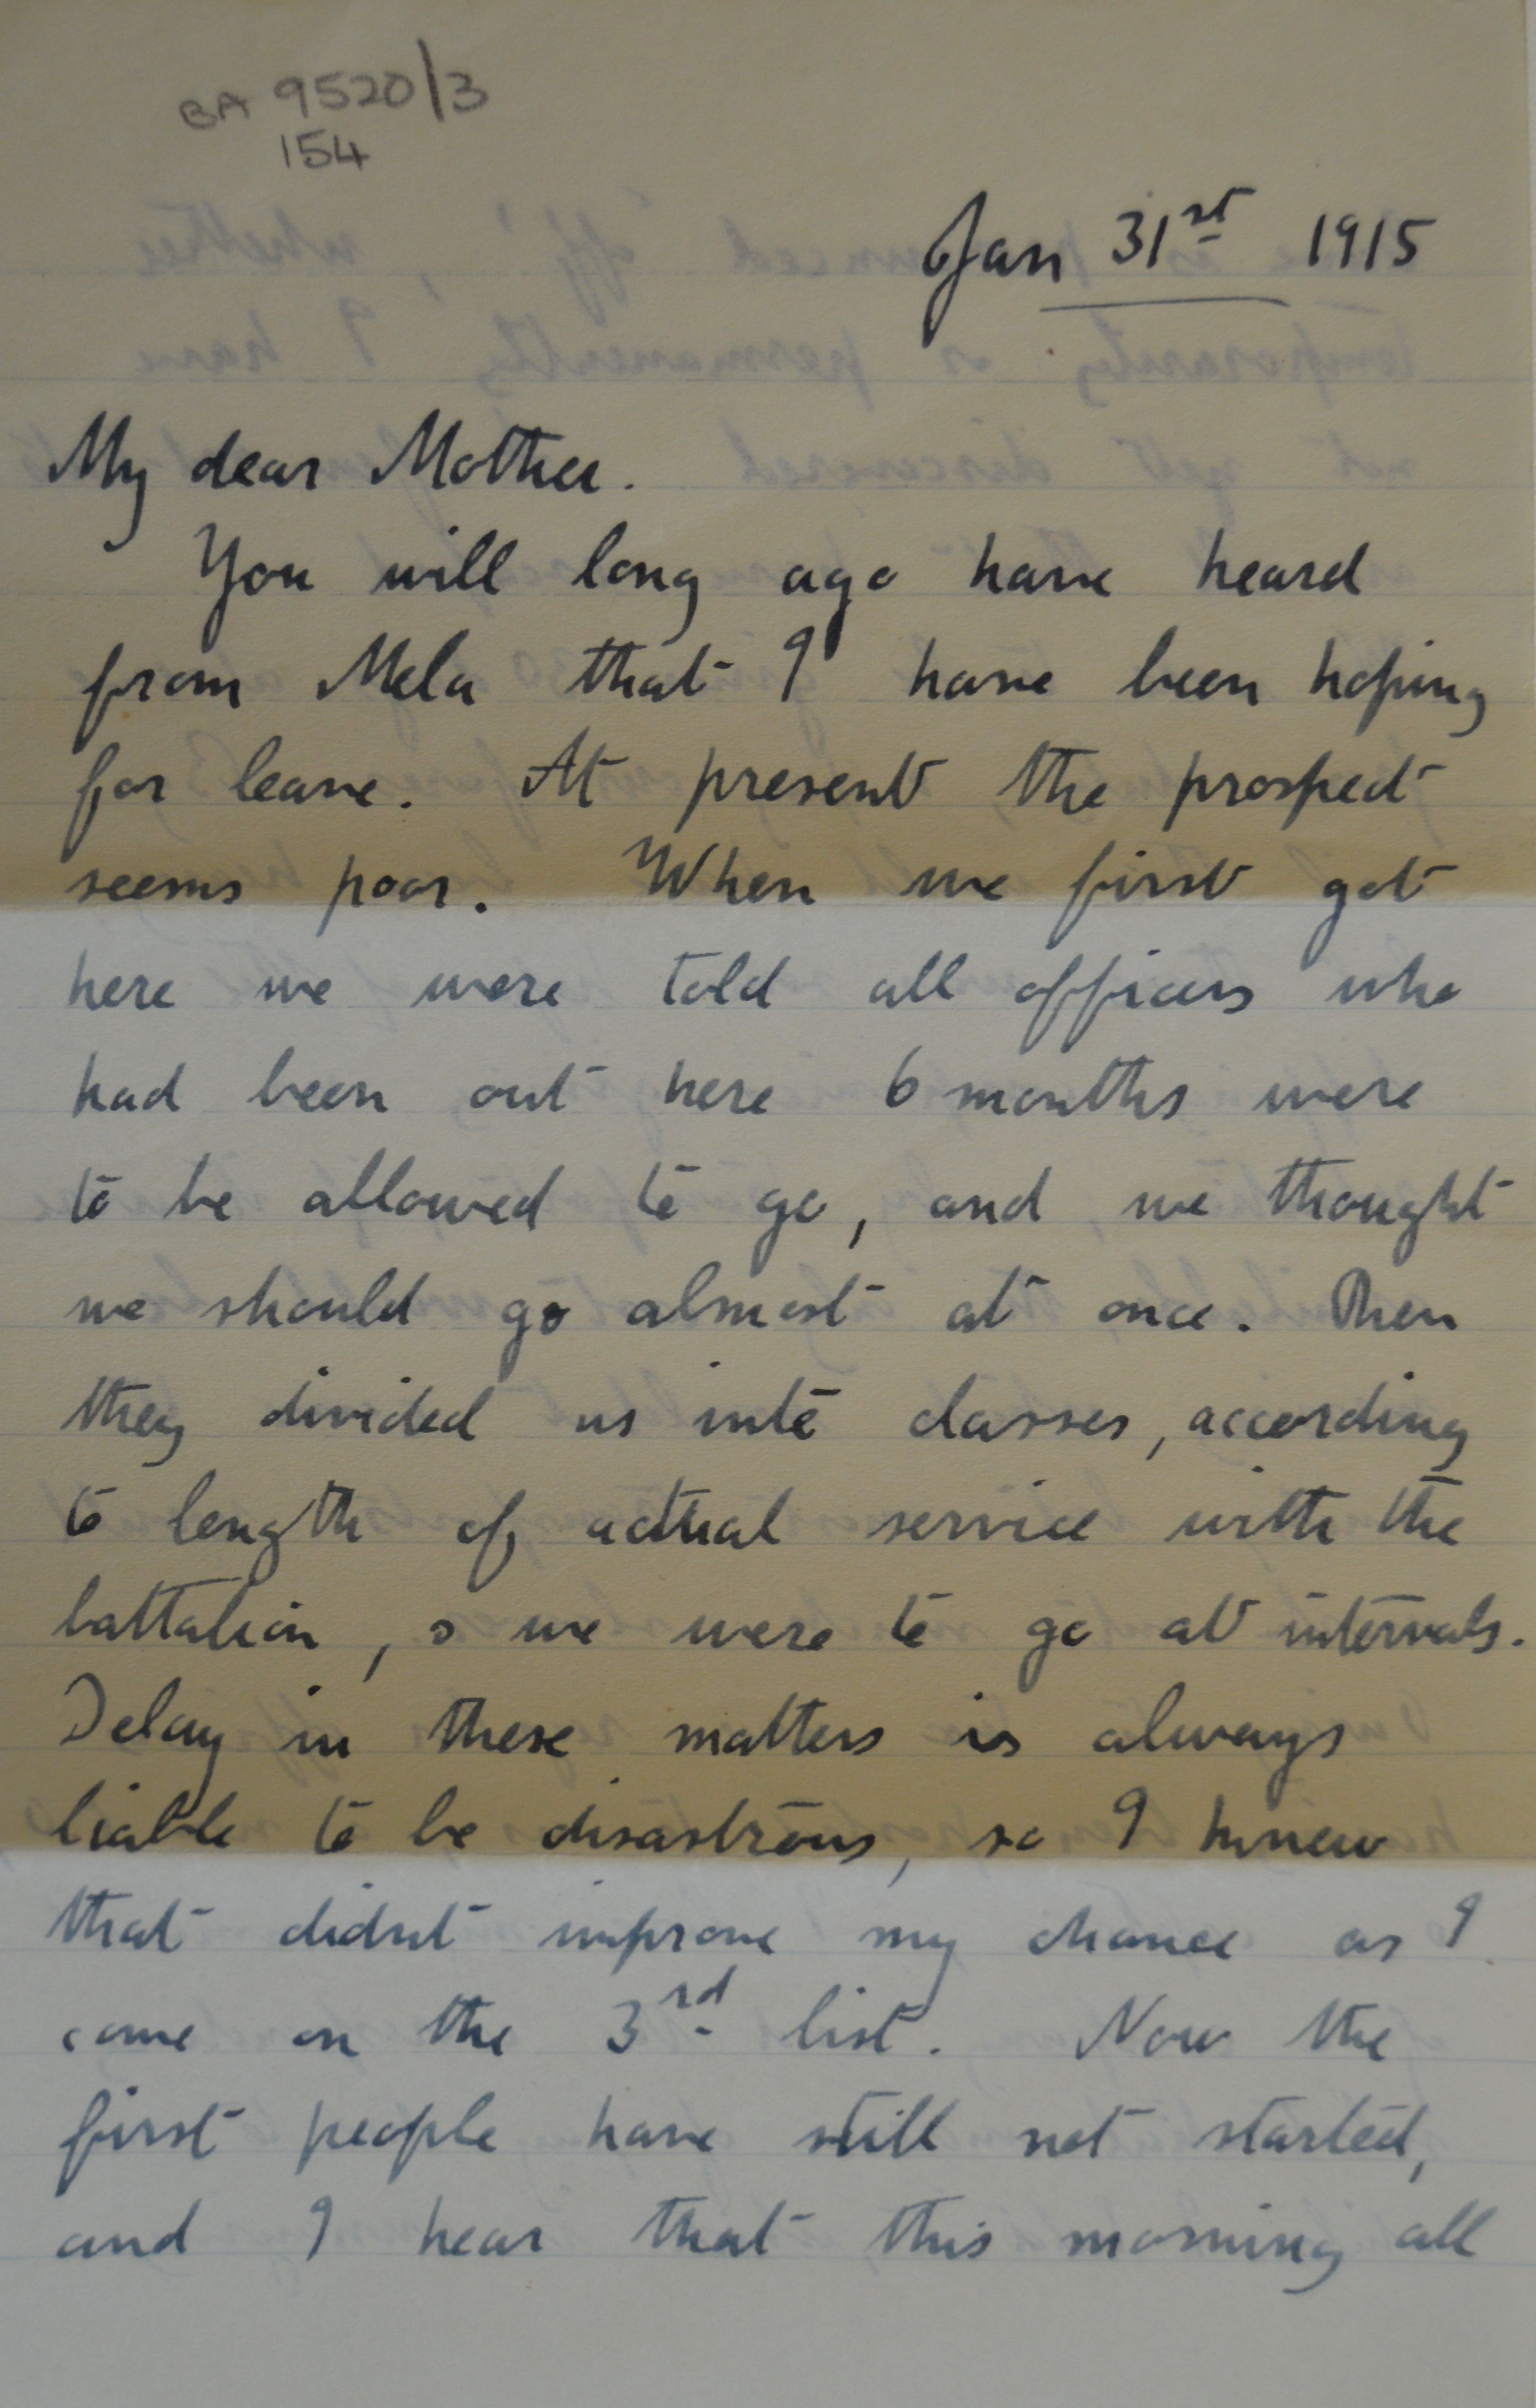 BA 9520/3
154
Jan 31st 1915
My dear Mother.
You will long ago have heard
from Mela that I have been hoping
for leave. At present the prospect
seems poor. When we first got
here we were told all officers who
had been out here 6 months were
to be allowed to go, and we thought
we should go almost at once. Then
they divided us into classes, according
to length of actual service with the
battalion, & we were to go at intervals.
Delay in these matters is always
liable to be disastrous, so I knew
that didnt improve my chance as I
come on the 3rd list. Now the
first people have still not started,
and I hear that this morning all